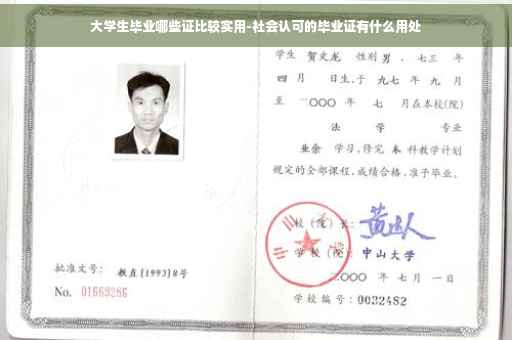 大学生毕业哪些证比较实用-社会认可的毕业证有什么用处
学生 贺文龙 性别 男 、七三 年
四 月 日生,于 九七 年 九 月
至 二〇〇〇 年 七 月在本校(院)
法 学 专业
业余 学习,修完 本 科教学计划
规定的全部课程,成绩合格,准予毕业。
校(院)长:
学校(院): 中山大学
二〇〇〇 年 七 月 一 日
批准文号: 教直[1993]8号
No. 01669286
学校编号:0032482